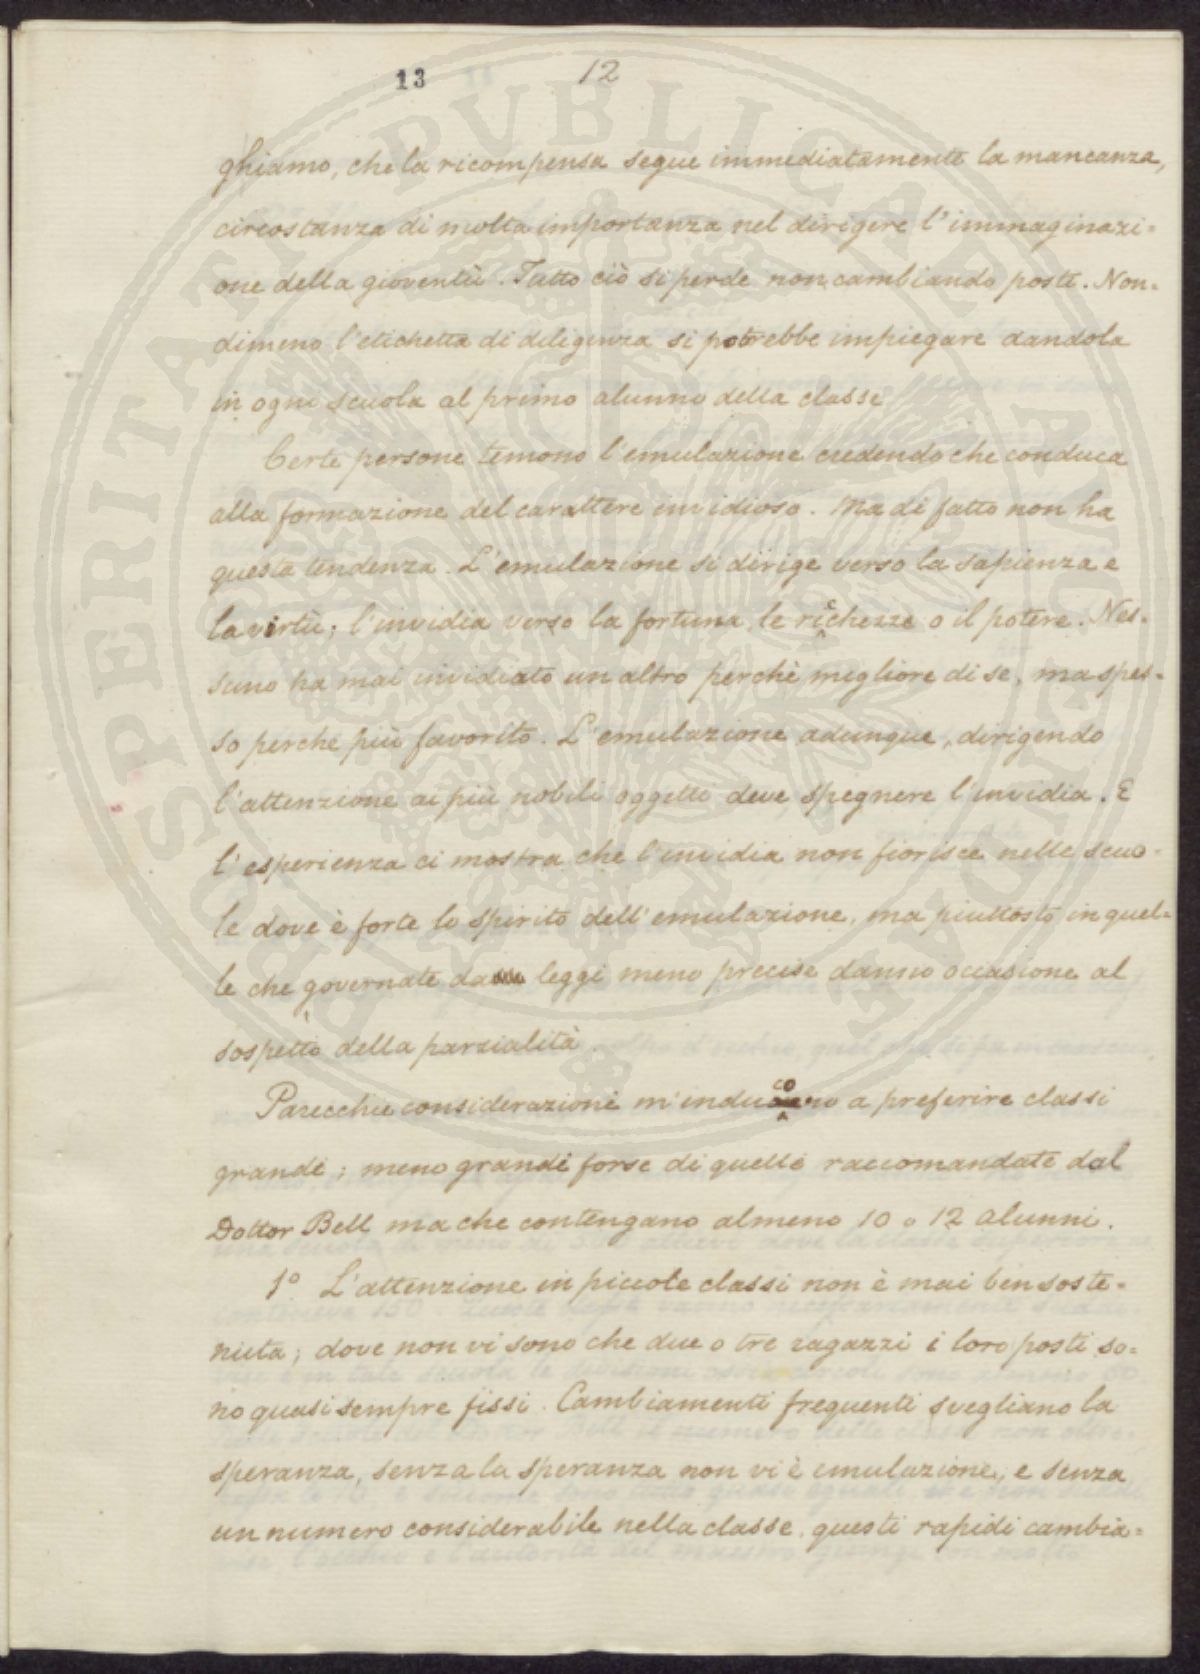 13 12
ghiamo, che la ricompensa segue immediatamente la mancanza,
circostanza di molta importanza nel dirigere l'immaginazi=
one della gioventù. Tutto ciò si perde non cambiando posti. Non=
dimeno l'etichetta di diligenza si potrebbe impiegare dandola
in ogni scuola al primo alunno della classe
Certe persone temono l'emulazione credendo che conduca
alla formazione del carattere invidioso. Ma di fatto non ha
questa tendenza. L'emulazione si dirige verso la sapienza e
la virtù; l'invidia verso la fortuna, le ricchezze o il potere. Nes=
suno ha mai invidiato un altro perchè migliore di se, ma spes=
so perche più favorito. L'emulazione adunque, dirigendo
l'attenzione ai più nobili oggetti deve spegnere l'invidia. E
l'esperienza ci mostra che l'invidia non fiorisce nelle scuo=
le dove è forte lo spirito dell'emulazione, ma piuttosto in quel=
le che governate da leggi meno precise danno occasione al
sospetto della parzialità.
Parecchie considerazioni m'inducono a preferire classi
grandi; meno grandi forse di quelle raccomandate dal
Dottor Bell ma che contengano almeno 10 o 12 alunni.
1º L'attenzione in piccole classi non è mai ben soste=
nuta; dove non vi sono che due o tre ragazzi i loro posti so=
no quasi sempre fissi. Cambiamenti frequenti svegliano la
speranza, senza la speranza non vi è emulazione, e senza
un numero considerabile nella classe, questi rapidi cambia=
PROSPERITATI PUBLICAE AUGENDAE